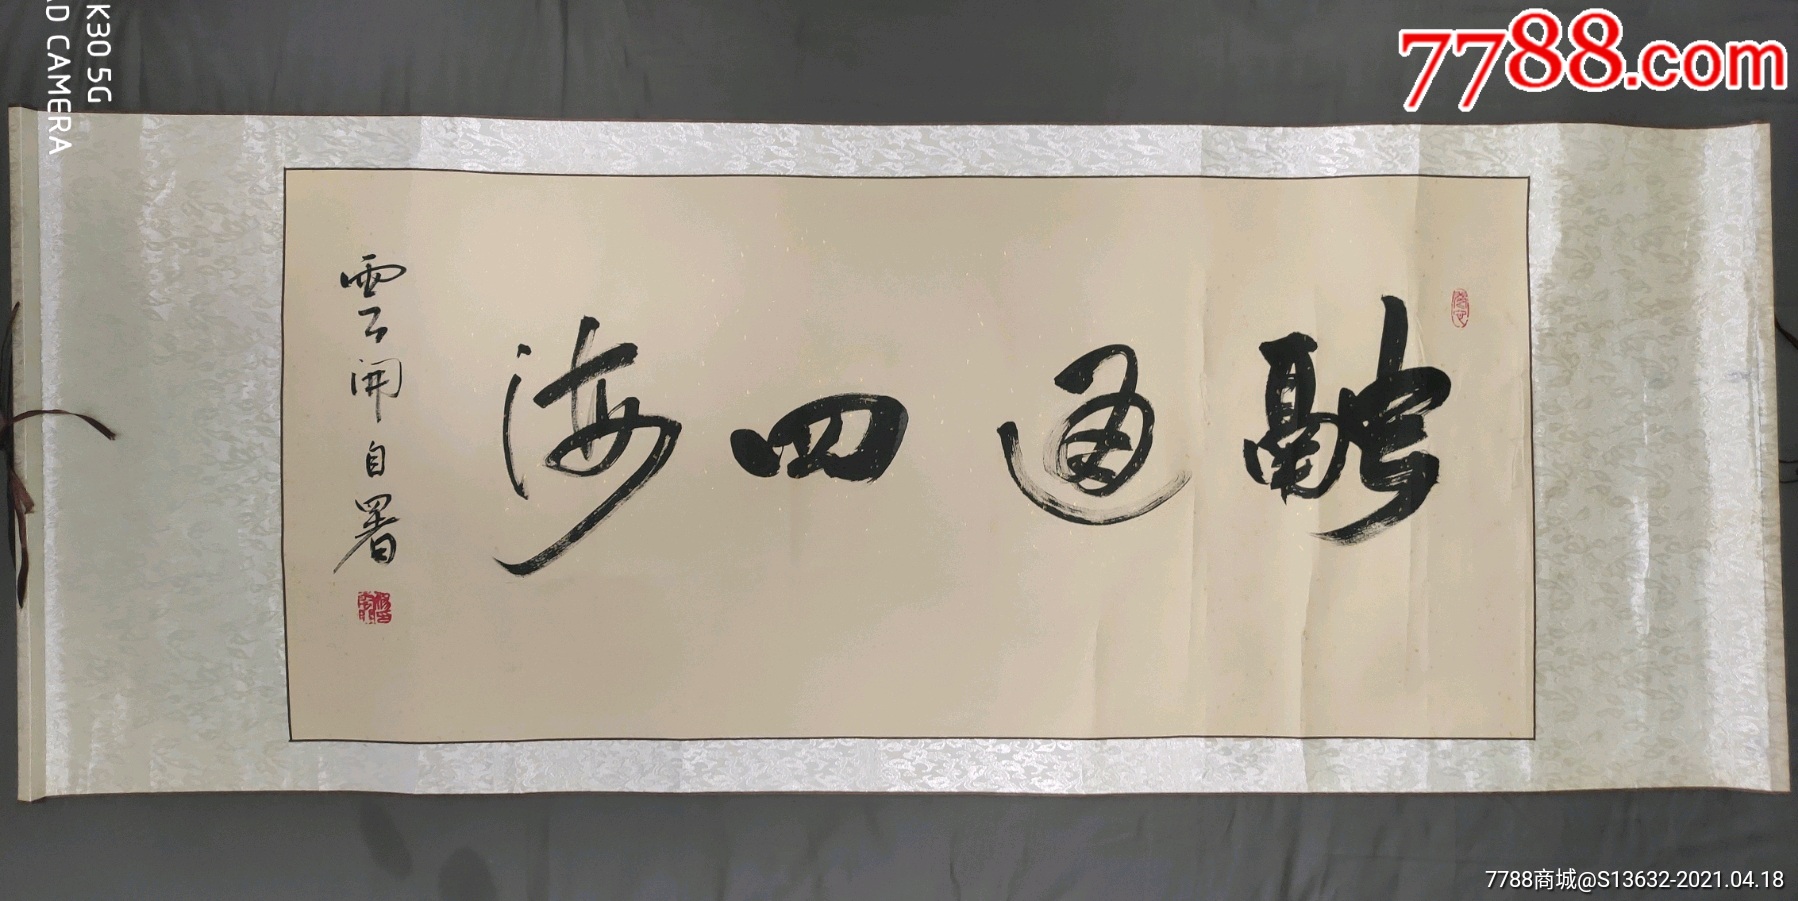 融通四海
雲開自署
7788.com
K30 5G
AD CAMERA
7788商城@S13632-2021.04.18